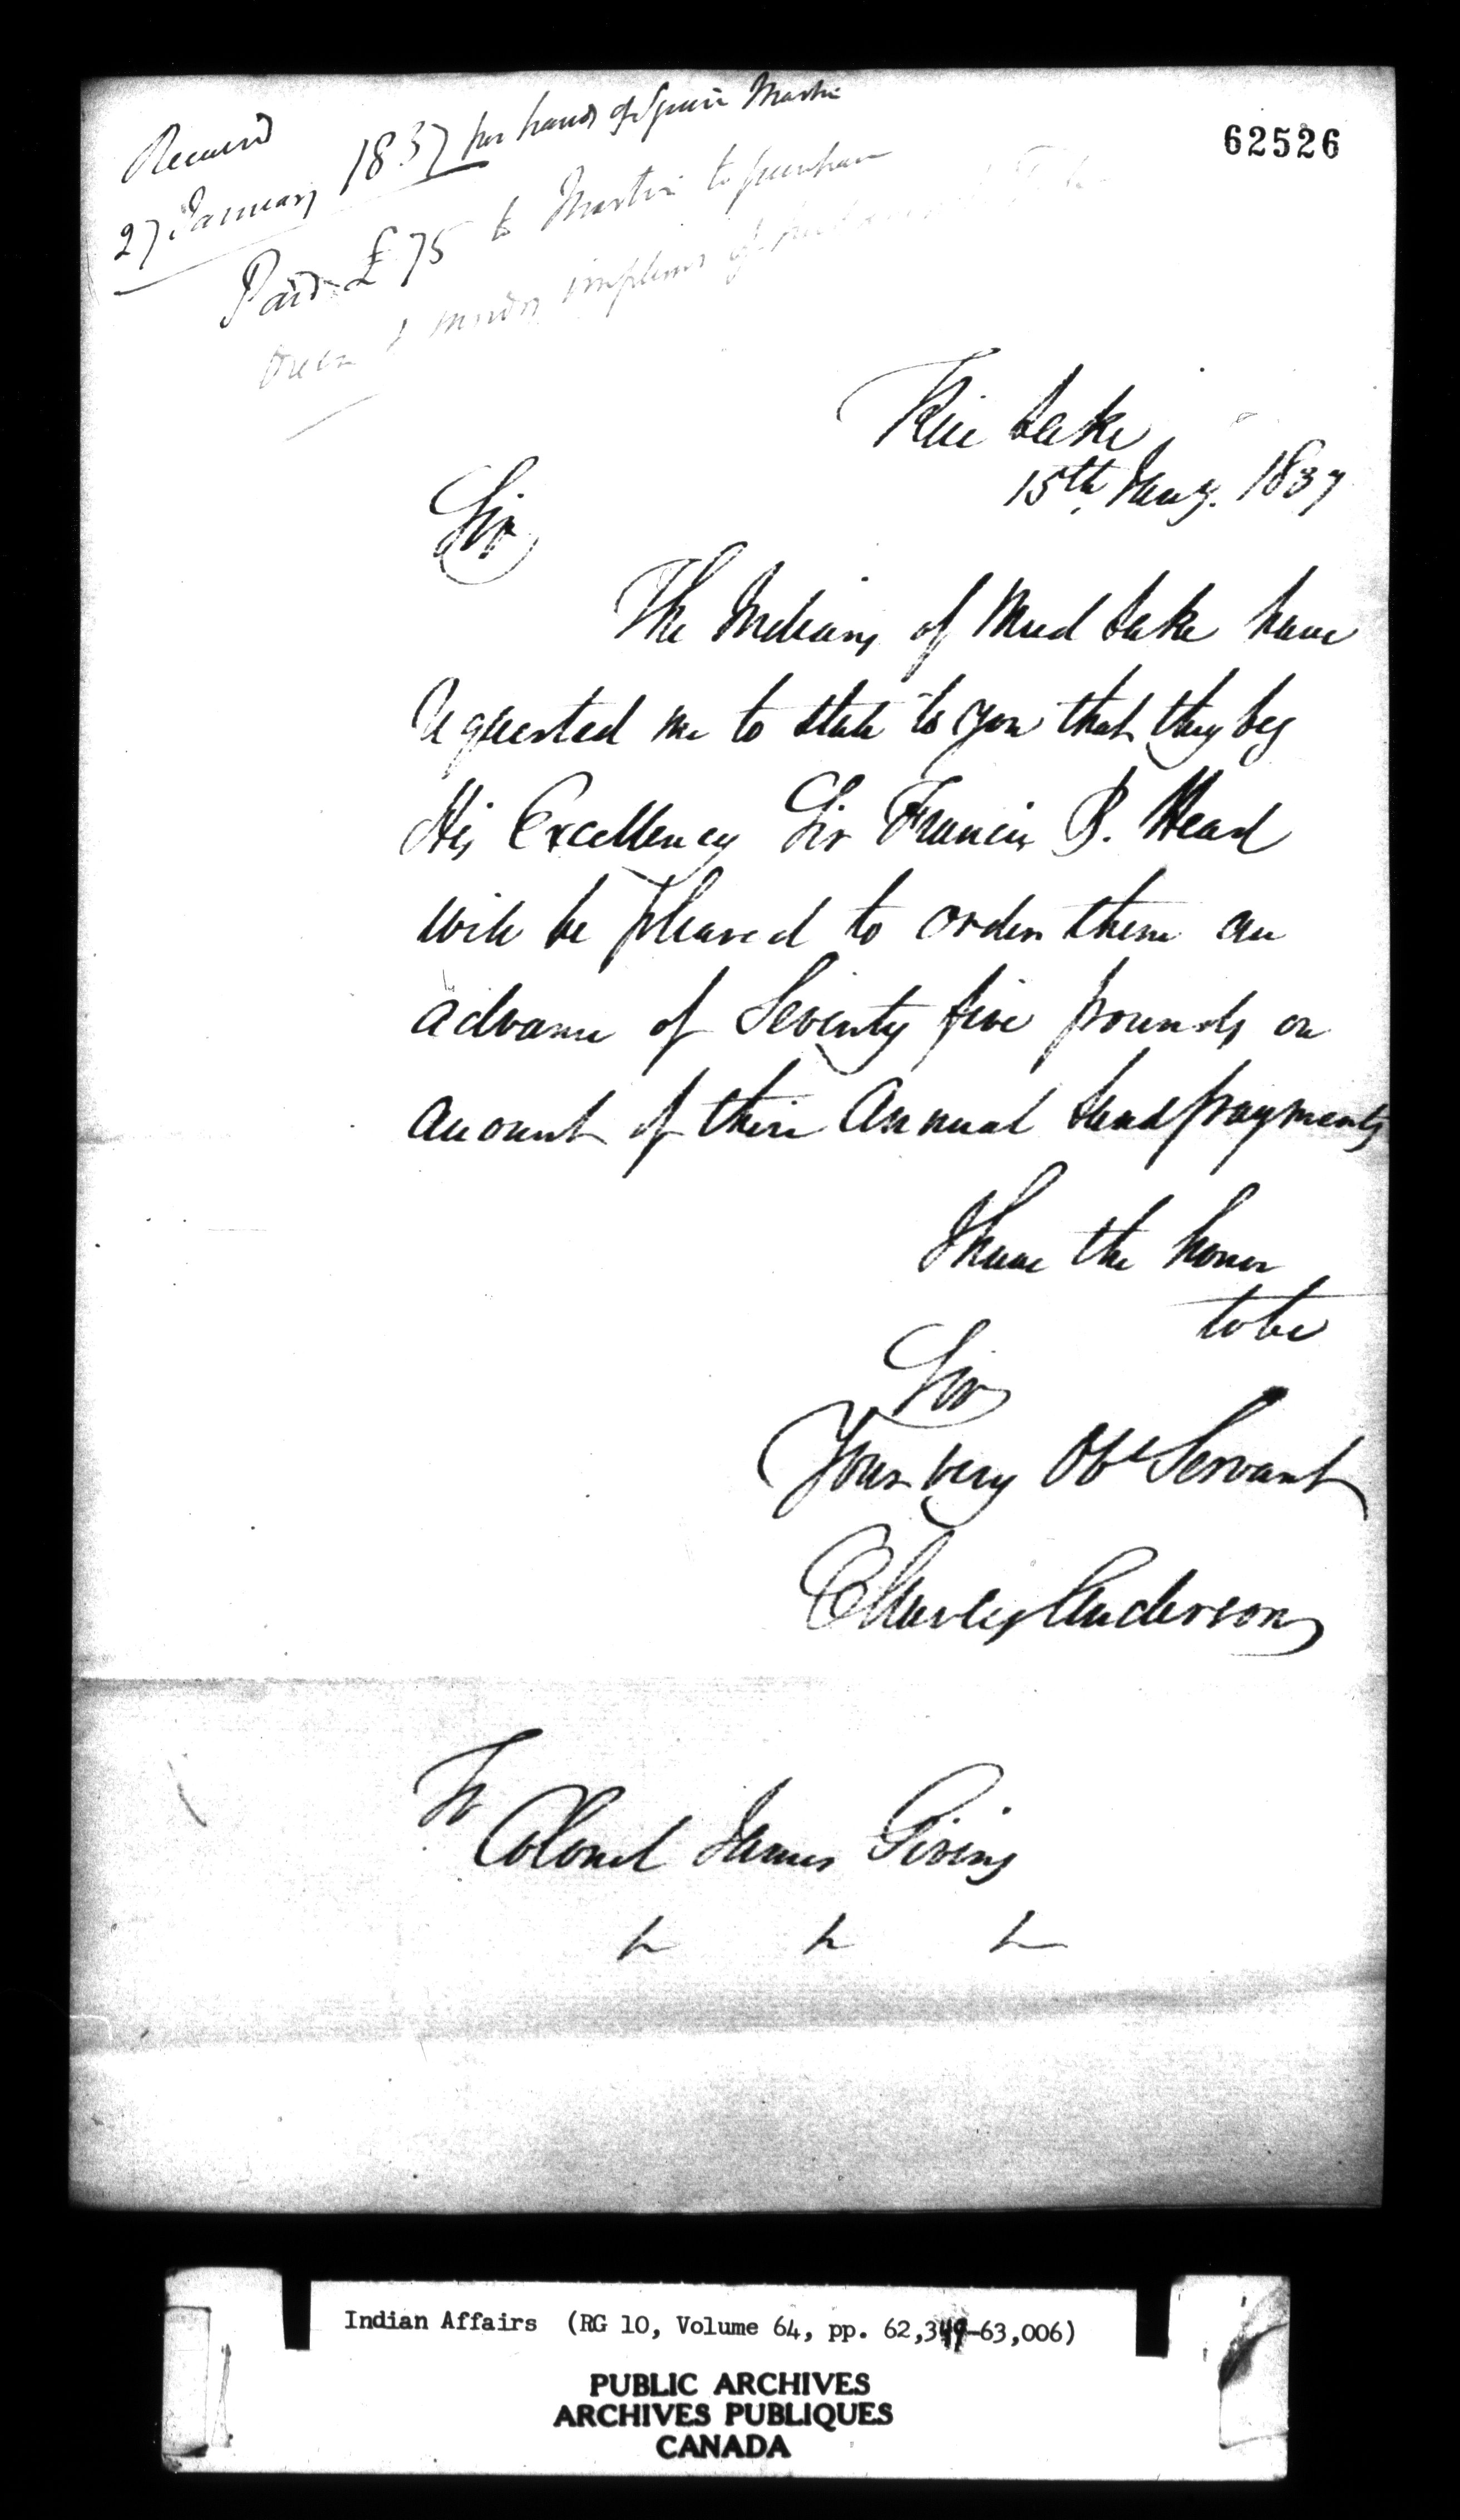 62526
Received
27 January 1837 per hands of Squire Martin
Paid £75 to Martin to purchase
Oxen & implems of
Rice Lake
15th Jany. 1837
Sir
The Indians of Mud Lake have
requested me to state to you that they beg
His Excellency Sir Francis B. Head
will be pleased to order them an
advance of Seventy five pounds on
account of their Annual Land payments
I have the honor
to be
Sir
Your very Obt Servant
Charles Anderson
To
Colonel James Givins
Indian Affairs (RG 10, Volume 64, pp. 62,349-63,006)
PUBLIC ARCHIVES
ARCHIVES PUBLIQUES
CANADA